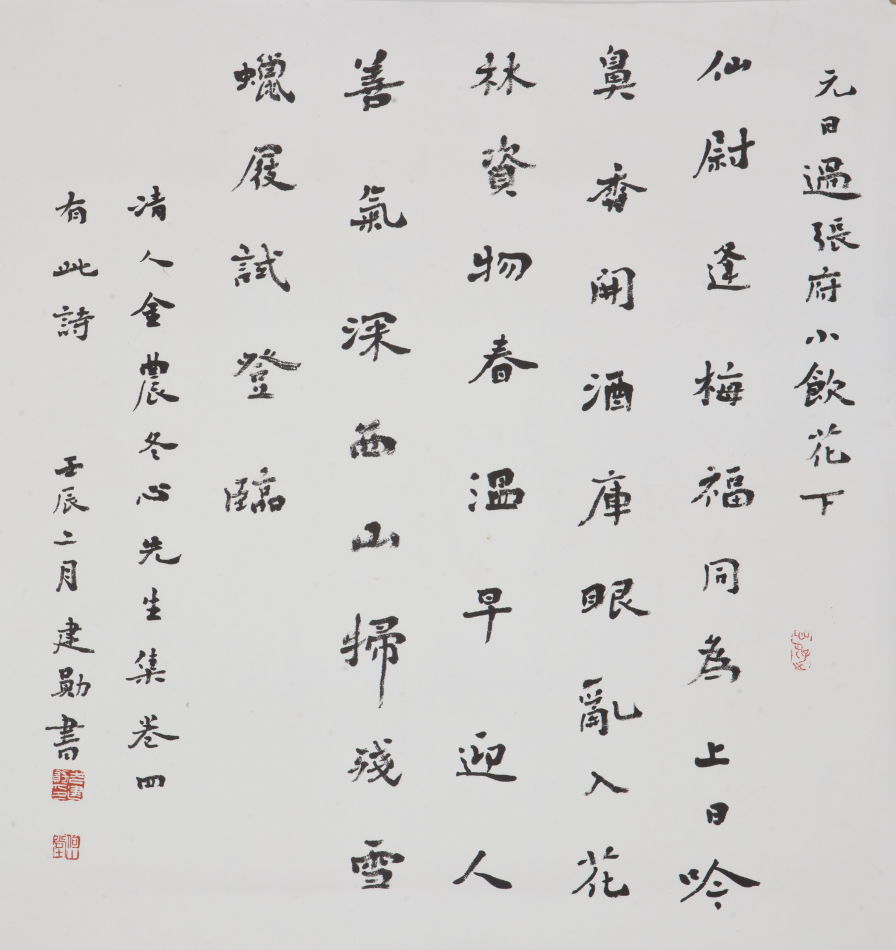 元日過張府小飲花下
仙尉逢梅福同為上日吟
鼻香開酒庫眼亂入花
林資物春溫早迎人
善氣深西山掃殘雪
蠟屐試登臨
清人金農冬心先生集卷四
有此詩 壬辰二月建勛書